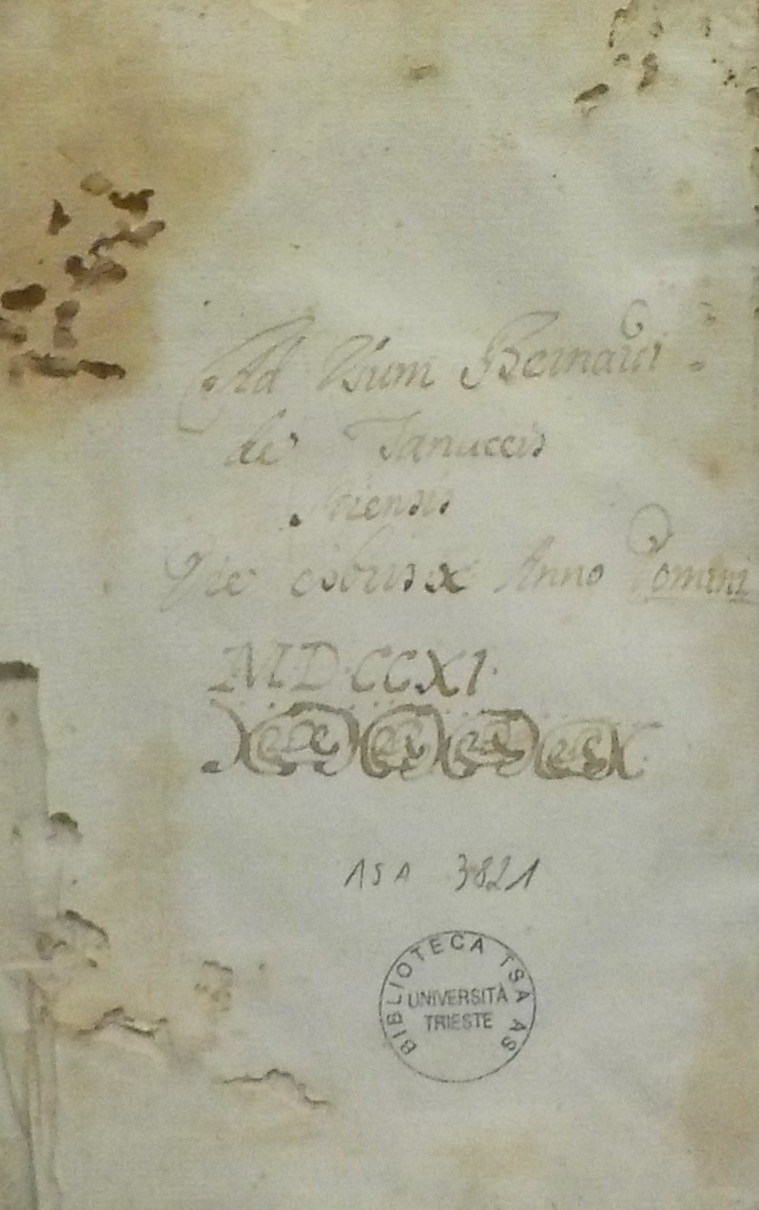 Ad Usum Bernardi
de Tanuccis
Die Anno Domini
MDCCXI.
ASA 3821
BIBLIOTECA TSA AS
UNIVERSITÀ
TRIESTE